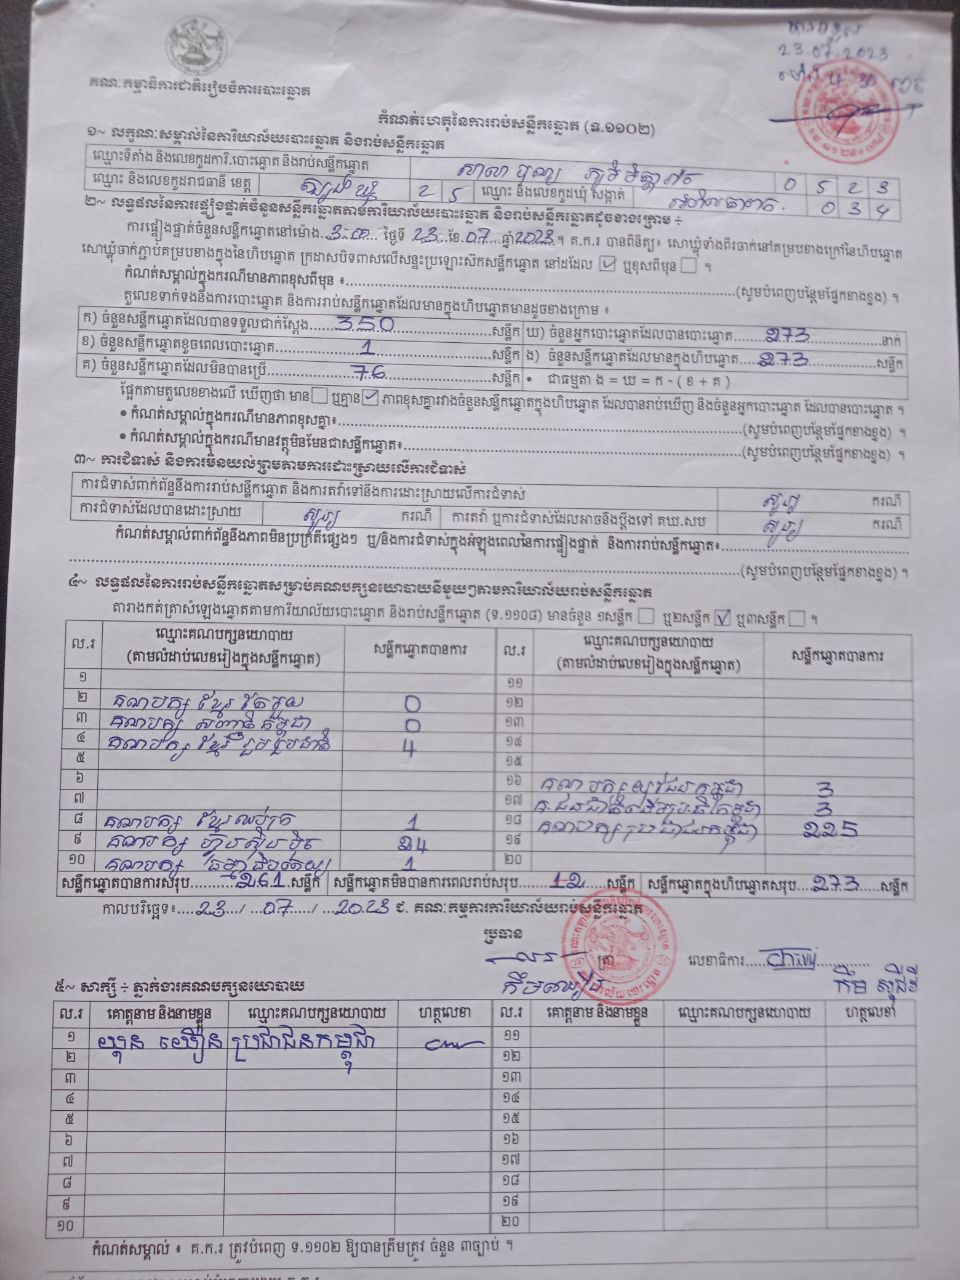 23.07.2023
គណៈកម្មាធិការជាតិរៀបចំការបោះឆ្នោត
កំណត់ហេតុនៃការរាប់សន្លឹកឆ្នោត (ទ.១១០២)
១~ លក្ខណៈសម្គាល់នៃការិយាល័យបោះឆ្នោត និងរាប់សន្លឹកឆ្នោត
ឈ្មោះទីតាំង និងលេខកូដការិ.បោះឆ្នោត និងរាប់សន្លឹកឆ្នោត សាលា 0 5 2 3
ឈ្មោះ និងលេខកូដរាជធានី ខេត្ត ត្បូងឃ្មុំ 2 5 ឈ្មោះ និងលេខកូដឃុំ សង្កាត់ 0 3 4
២~ លទ្ធផលនៃការផ្ទៀងផ្ទាត់ចំនួនសន្លឹកឆ្នោតតាមការិយាល័យបោះឆ្នោត និងរាប់សន្លឹកឆ្នោតដូចខាងក្រោម ÷
ការផ្ទៀងផ្ទាត់ចំនួនសន្លឹកឆ្នោតនៅម៉ោង..3:00... ថ្ងៃទី 23.ខែ.07..ឆ្នាំ2023.។ គ.ក.រ បានពិនិត្យ៖ សោឃ្លុំទាំងពីរចាក់នៅគម្របខាងក្រៅនៃហិបឆ្នោត
សោឃ្លុំចាក់ភ្ជាប់គម្របខាងក្នុងនៃហិបឆ្នោត ក្រដាសបិទពាសលើសន្ទះប្រឡោះសិកសន្លឹកឆ្នោត នៅដដែល ☑ ឬខុសពីមុន ☐ ។
កំណត់សម្គាល់ក្នុងករណីមានភាពខុសពីមុន ៖...(សូមបំពេញបន្ថែមផ្នែកខាងខ្នង) ។
តួលេខទាក់ទងនឹងការបោះឆ្នោត និងការរាប់សន្លឹកឆ្នោតដែលមានក្នុងហិបឆ្នោតមានដូចខាងក្រោម ៖
ក) ចំនួនសន្លឹកឆ្នោតដែលបានទទួលជាក់ស្តែង...350...សន្លឹក ឃ) ចំនួនអ្នកបោះឆ្នោតដែលបានបោះឆ្នោត...273...នាក់
ខ) ចំនួនសន្លឹកឆ្នោតខូចពេលបោះឆ្នោត...1...សន្លឹក ង) ចំនួនសន្លឹកឆ្នោតដែលមានក្នុងហិបឆ្នោត...273...សន្លឹក
គ) ចំនួនសន្លឹកឆ្នោតដែលមិនបានប្រើ...76...សន្លឹក • ជាធម្មតា ង = ឃ = ក - ( ខ + គ )
ផ្អែកតាមតួលេខខាងលើ ឃើញថា មាន☐ឬគ្មាន☑ ភាពខុសគ្នារវាងចំនួនសន្លឹកឆ្នោតក្នុងហិបឆ្នោត ដែលបានរាប់ឃើញ និងចំនួនអ្នកបោះឆ្នោត ដែលបានបោះឆ្នោត ។
• កំណត់សម្គាល់ក្នុងករណីមានភាពខុសគ្នា៖...(សូមបំពេញបន្ថែមផ្នែកខាងខ្នង) ។
• កំណត់សម្គាល់ក្នុងករណីមានវត្ថុមិនមែនជាសន្លឹកឆ្នោត៖...(សូមបំពេញបន្ថែមផ្នែកខាងខ្នង) ។
៣~ ការជំទាស់ និងការមិនយល់ព្រមតាមការដោះស្រាយលើការជំទាស់
ការជំទាស់ពាក់ព័ន្ធនឹងការរាប់សន្លឹកឆ្នោត និងការតវ៉ាទៅនឹងការដោះស្រាយលើការជំទាស់ សូន្យ ករណី
ការជំទាស់ដែលបានដោះស្រាយ សូន្យ ករណី ការតវ៉ា ឬការជំទាស់ដែលអាចនឹងប្តឹងទៅ គឃ.សប សូន្យ ករណី
កំណត់សម្គាល់ពាក់ព័ន្ធនឹងភាពមិនប្រក្រតីផ្សេងៗ ឬ/និងការជំទាស់ក្នុងអំឡុងពេលនៃការផ្ទៀងផ្ទាត់ និងការរាប់សន្លឹកឆ្នោត៖...
...(សូមបំពេញបន្ថែមផ្នែកខាងខ្នង) ។
៤~ លទ្ធផលនៃការរាប់សន្លឹកឆ្នោតសម្រាប់គណបក្សនយោបាយនីមួយៗតាមការិយាល័យរាប់សន្លឹកឆ្នោត
តារាងកត់ត្រាសំឡេងឆ្នោតតាមការិយាល័យបោះឆ្នោត និងរាប់សន្លឹកឆ្នោត (ទ.១១០៨) មានចំនួន ១សន្លឹក ☐ ឬ២សន្លឹក ☑ ឬ៣សន្លឹក ☐ ។
ល.រ ឈ្មោះគណបក្សនយោបាយ (តាមលំដាប់លេខរៀងក្នុងសន្លឹកឆ្នោត) សន្លឹកឆ្នោតបានការ ល.រ ឈ្មោះគណបក្សនយោបាយ (តាមលំដាប់លេខរៀងក្នុងសន្លឹកឆ្នោត) សន្លឹកឆ្នោតបានការ
១ ១១
២ គណបក្ស ខ្មែរ តែមួយ 0 ១២
៣ គណបក្ស សញ្ជាតិ កម្ពុជា 0 ១៣
៤ គណបក្ស ខ្មែរ រួបរួមជាតិ 4 ១៤
៥ ១៥
៦ ១៦ គណបក្ស យុវជនកម្ពុជា 3
៧ ១៧ គ.ជនជាតិដើមប្រជាធិបតេយ្យកម្ពុជា 3
៨ គណបក្ស ខ្មែរឈប់ក្រ 1 ១៨ គណបក្ស ប្រជាជនកម្ពុជា 225
៩ គណបក្ស ហ្វ៊ុនស៊ិនប៉ិច 24 ១៩
១០ គណបក្ស ធម្មាធិបតេយ្យ 1 ២០
សន្លឹកឆ្នោតបានការសរុប...261.សន្លឹក សន្លឹកឆ្នោតមិនបានការពេលរាប់សរុប...12...សន្លឹក សន្លឹកឆ្នោតក្នុងហិបឆ្នោតសរុប...273...សន្លឹក
កាលបរិច្ឆេទ៖...23.../...07..../...2023 ជ. គណៈកម្មការការិយាល័យរាប់សន្លឹកឆ្នោត
ប្រធាន
ត្រា លេខាធិការ
៥~ សាក្សី ÷ ភ្នាក់ងារគណបក្សនយោបាយ
ល.រ គោត្តនាម និងនាមខ្លួន ឈ្មោះគណបក្សនយោបាយ ហត្ថលេខា ល.រ គោត្តនាម និងនាមខ្លួន ឈ្មោះគណបក្សនយោបាយ ហត្ថលេខា
១ យុន យឿន ប្រជាជនកម្ពុជា ១១
២ ១២
៣ ១៣
៤ ១៤
៥ ១៥
៦ ១៦
៧ ១៧
៨ ១៨
៩ ១៩
១០ ២០
កំណត់សម្គាល់ ៖ គ.ក.រ ត្រូវបំពេញ ទ.១១០២ ឱ្យបានត្រឹមត្រូវ ចំនួន ៣ច្បាប់ ។